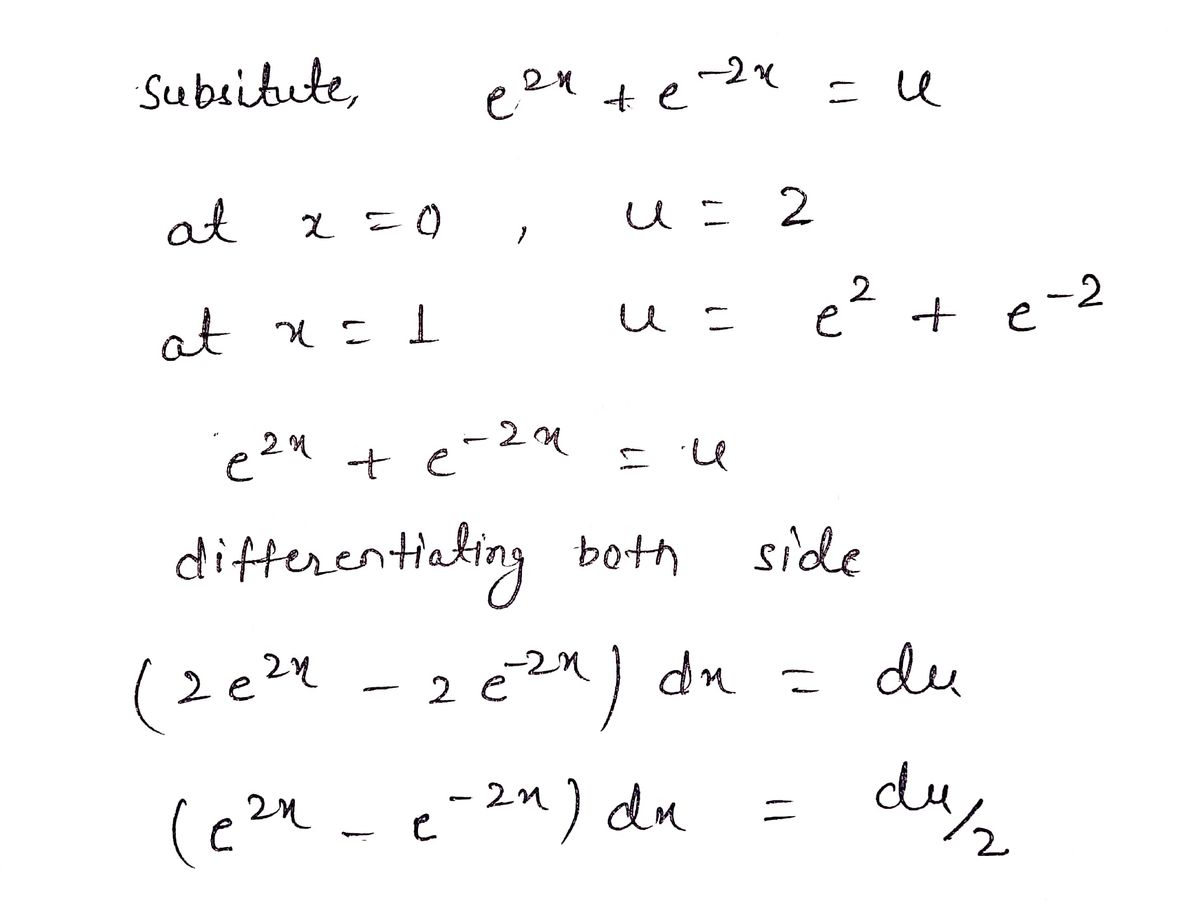 Subsitute, e^{2x} + e^{-2x} = u
at x = 0 , u = 2
at x = 1 u = e^2 + e^{-2}
e^{2x} + e^{-2x} = u
differentiating both side
(2e^{2x} - 2e^{-2x}) dx = du
(e^{2x} - e^{-2x}) dx = du/2